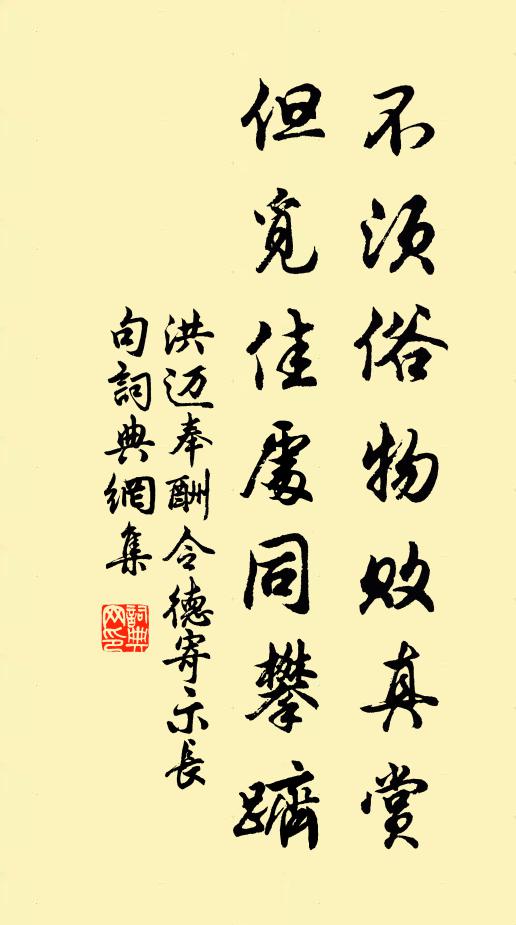 不須俗物敗真賞
但覓佳處同攀躋
洪迈奉酬令德寄示長
句詞典網集
詞典網印